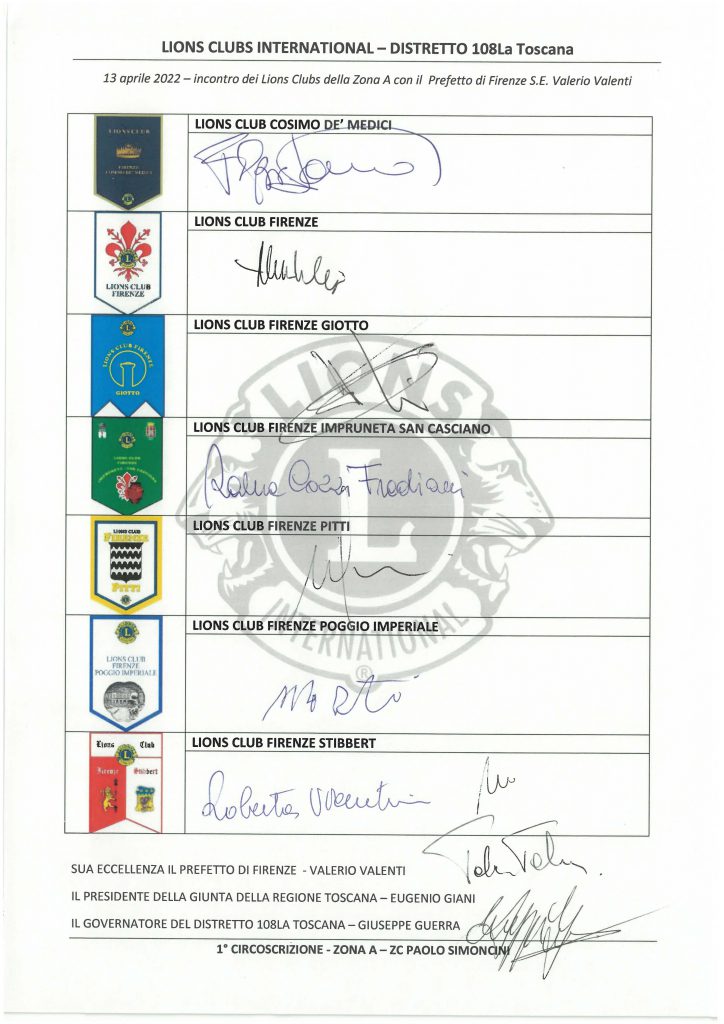 LIONS CLUBS INTERNATIONAL – DISTRETTO 108La Toscana
13 aprile 2022 – incontro dei Lions Clubs della Zona A con il Prefetto di Firenze S.E. Valerio Valenti
LIONS CLUB COSIMO DE' MEDICI
LIONS CLUB
FIRENZE
COSIMO DE' MEDICI
LIONS CLUB FIRENZE
LIONS CLUB
FIRENZE
LIONS CLUB FIRENZE GIOTTO
LIONS CLUB FIRENZE
GIOTTO
LIONS
INTERNATIONAL
L
®
LIONS CLUB FIRENZE IMPRUNETA SAN CASCIANO
LIONS CLUB
FIRENZE
IMPRUNETA - SAN CASCIANO
Cozzi Frediani
LIONS CLUB FIRENZE PITTI
LIONS CLUB
FIRENZE
PITTI
LIONS CLUB FIRENZE POGGIO IMPERIALE
LIONS CLUB
FIRENZE
POGGIO IMPERIALE
LIONS CLUB FIRENZE STIBBERT
Lions Club
Firenze Stibbert
Roberto
SUA ECCELLENZA IL PREFETTO DI FIRENZE - VALERIO VALENTI
IL PRESIDENTE DELLA GIUNTA DELLA REGIONE TOSCANA – EUGENIO GIANI
IL GOVERNATORE DEL DISTRETTO 108LA TOSCANA – GIUSEPPE GUERRA
1° CIRCOSCRIZIONE - ZONA A – ZC PAOLO SIMONCINI